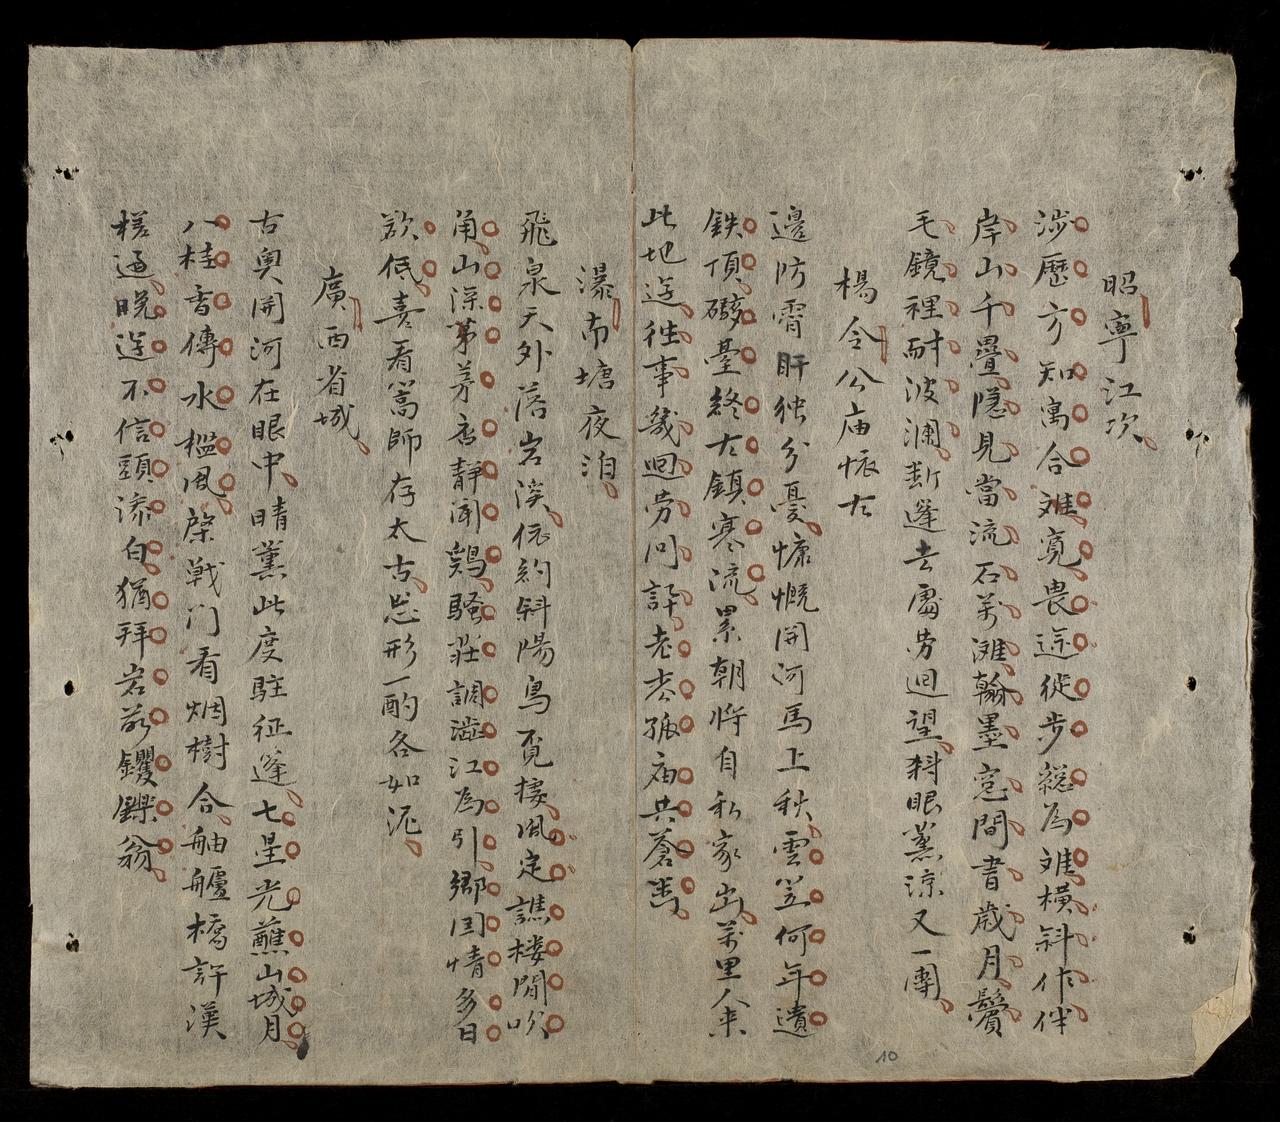 昭寧江次
涉歷方知寓合難寬畏途徒步總為難橫斜作伴
岸山千疊隱見當流石萬灘翰墨窓間書歲月鬢
毛鏡裡耐波瀾斷蓬去處勞迴望斜眼薰涼又一團
楊令公庙懷古
邊防霄旰独分憂慷慨開河馬上秋雲笠何年遺
鉄頂礮臺終古鎮寒流累朝將自私家出萬里人來
此地逰徃事幾迴劳问訊老孤庙共蒼
瀑南塘夜泊
飛泉天外落岩溪依約斜陽鳥覓棲風定譙楼聞吹
角山深茅店靜闻鶏騷莊調澁江為引鄉国情多日
欲低喜看篙師存太古忘形一酌各如泥
廣西省城
古奧開河在眼中晴薰此度駐征蓬七星光蘸山城月
八桂香傳水檻風棨戟门看烟樹合舳艫橋許漢
槎通晚逰不信頭添白猶拜岩前钁鑠翁
10